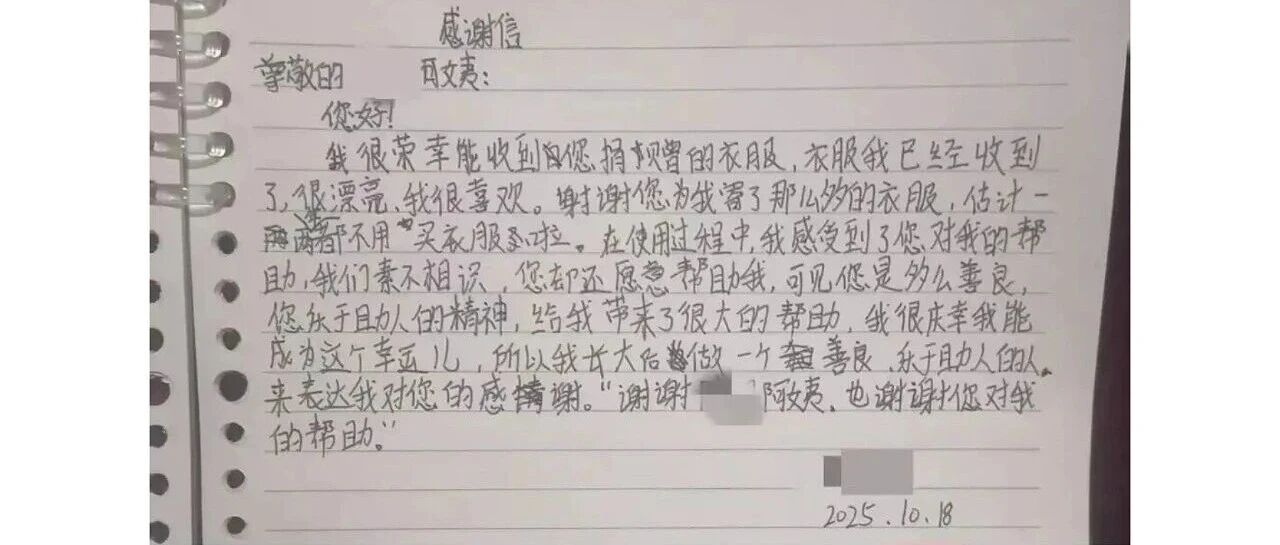 感谢信
尊敬的 阿姨：
您好！
我很荣幸能收到您捐赠的衣服，衣服我已经收到
了，很漂亮、我很喜欢。谢谢您为我寄了那么多的衣服，估计一
两年都不用买衣服啦。在使用过程中，我感受到了您对我的帮
助，我们素不相识，您却还愿意帮助我，可见您是多么善良，
您乐于助人的精神，给我带来了很大的帮助，我很庆幸我能
成为这个幸运儿，所以我长大后做一个善良、乐于助人的人。
来表达我对您的感谢。“谢谢 阿姨，也谢谢您对我
的帮助。”
2025.10.18